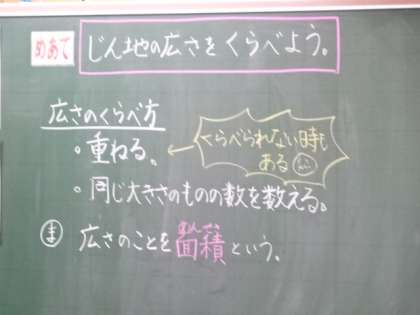 めあて じん地の広さをくらべよう。
広さのくらべ方
・重ねる。
くらべられない時も
ある
・同じ大きさのものの数を数える。
ま 広さのことを面積という。